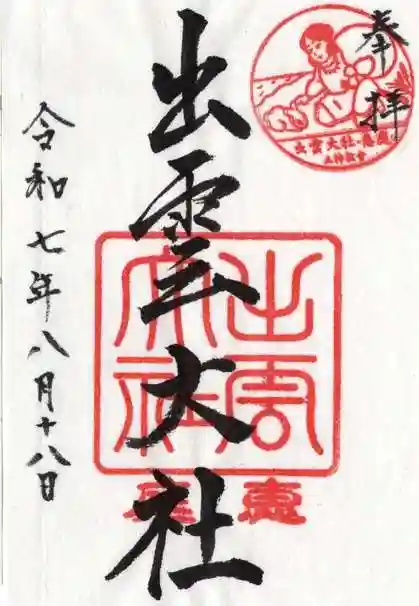 奉拝
出雲大社
令和七年八月十八日
出雲大社